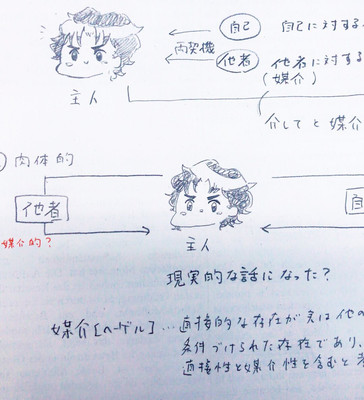 自己 自己に対する
両契機
他者 他者に対する
(媒介)
主人
介して と 媒介
肉体的
他者
媒介的?
主人
現実的な話になった?
媒介[ヘーゲル]…直接的な存在が実は他の
条件づけられた存在であり、
直接性と媒介性を含むと考